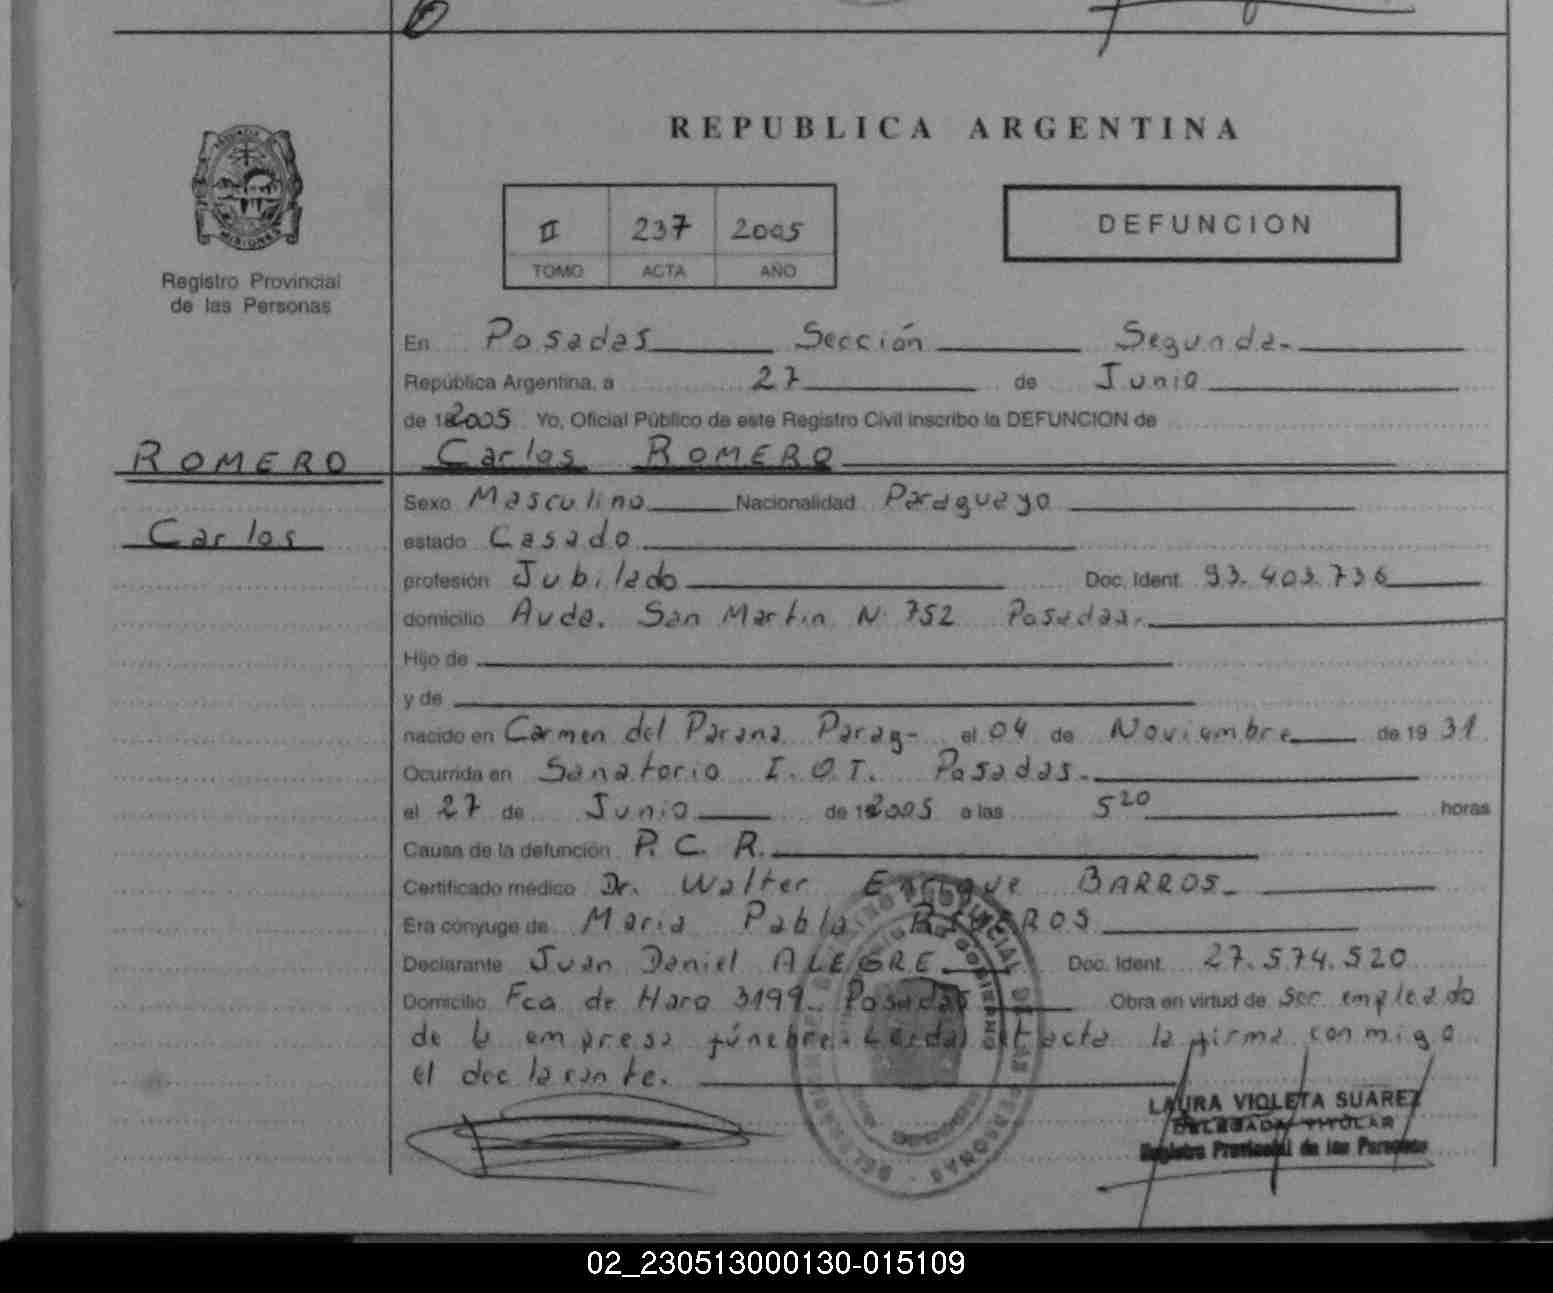 REPUBLICA ARGENTINA
MISIONES
Registro Provincial
de las Personas
II 237 2005
TOMO ACTA AÑO
DEFUNCION
En Posadas Sección Segunda.
República Argentina, a 27 de Junio
de 2005 Yo, Oficial Público de este Registro Civil inscribo la DEFUNCION de
ROMERO
Carlos
Carlos ROMERO
Sexo Masculino Nacionalidad Paraguayo
estado Casado
profesión Jubilado Doc. Ident. 93.403.736
domicilio Avda. San Martin N 752 Posadas.
Hijo de
y de
nacido en Carmen del Parana Parag- el 04 de Noviembre de 19 31
Ocurrida en Sanatorio I.O.T. Posadas.
el 27 de Junio de 2005 a las 5 20 horas
Causa de la defunción P.C.R.
Certificado médico Dr. Walter Enrique BARROS.
Era cónyuge de Maria Pabla
Declarante Juan Daniel ALEGRE Doc. Ident. 27.574.520
Domicilio Fca de Haro 3199. Posadas Obra en virtud de Ser empleado
de la empresa fúnebre. Leida el acta la firma conmigo
el declarante.
LAURA VIOLETA SUAREZ
DELEGADA TITULAR
Registro Provincial de las Personas
02_230513000130-015109